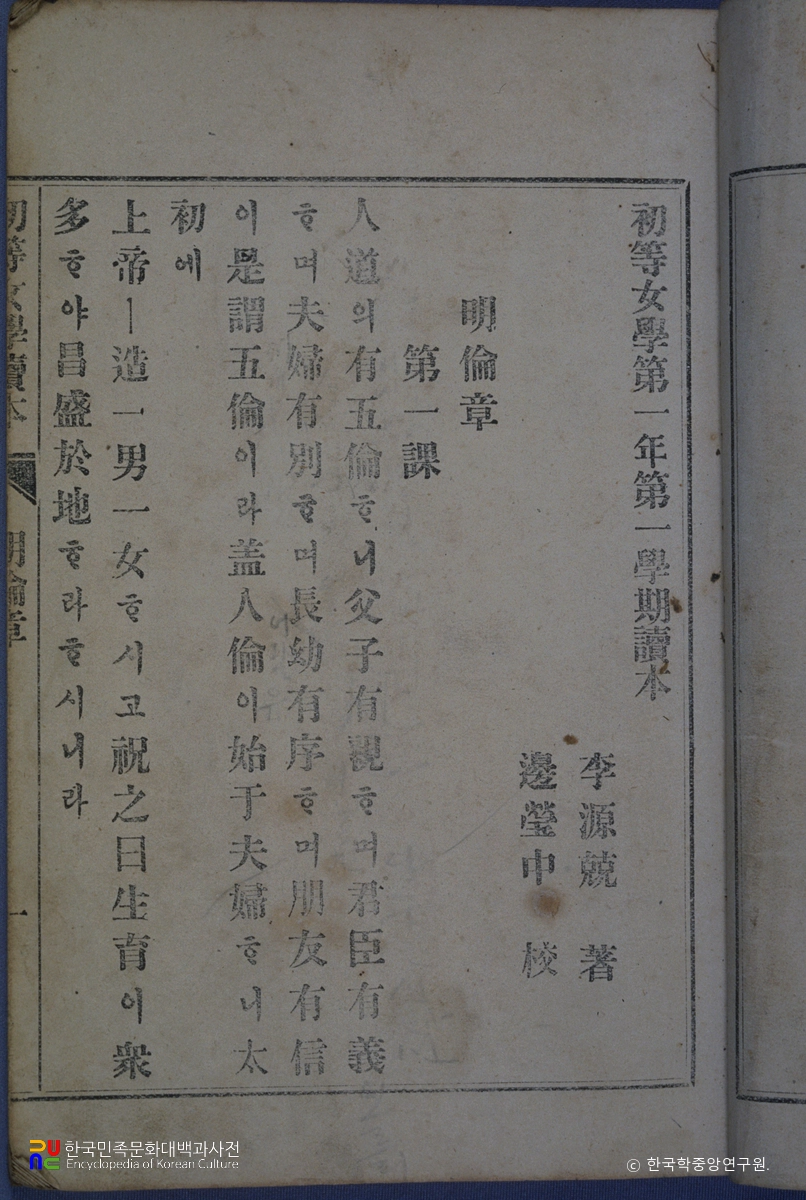 初等女學第一年第一學期讀本
李源兢 著
邊瑩中 校
明倫章
第一課
人道의有五倫ᄒᆞ니父子有親ᄒᆞ며君臣有義
ᄒᆞ며夫婦有別ᄒᆞ며長幼有序ᄒᆞ며朋友有信
이是謂五倫이라盖人倫이始于夫婦ᄒᆞ니太
初에
上帝ㅣ造一男一女ᄒᆞ시고祝之曰生育이衆
多ᄒᆞ야昌盛於地ᄒᆞ라ᄒᆞ시니라
初等女學讀本 明倫章 一
한국민족문화대백과사전
Encyclopedia of Korean Culture
ⓒ 한국학중앙연구원.